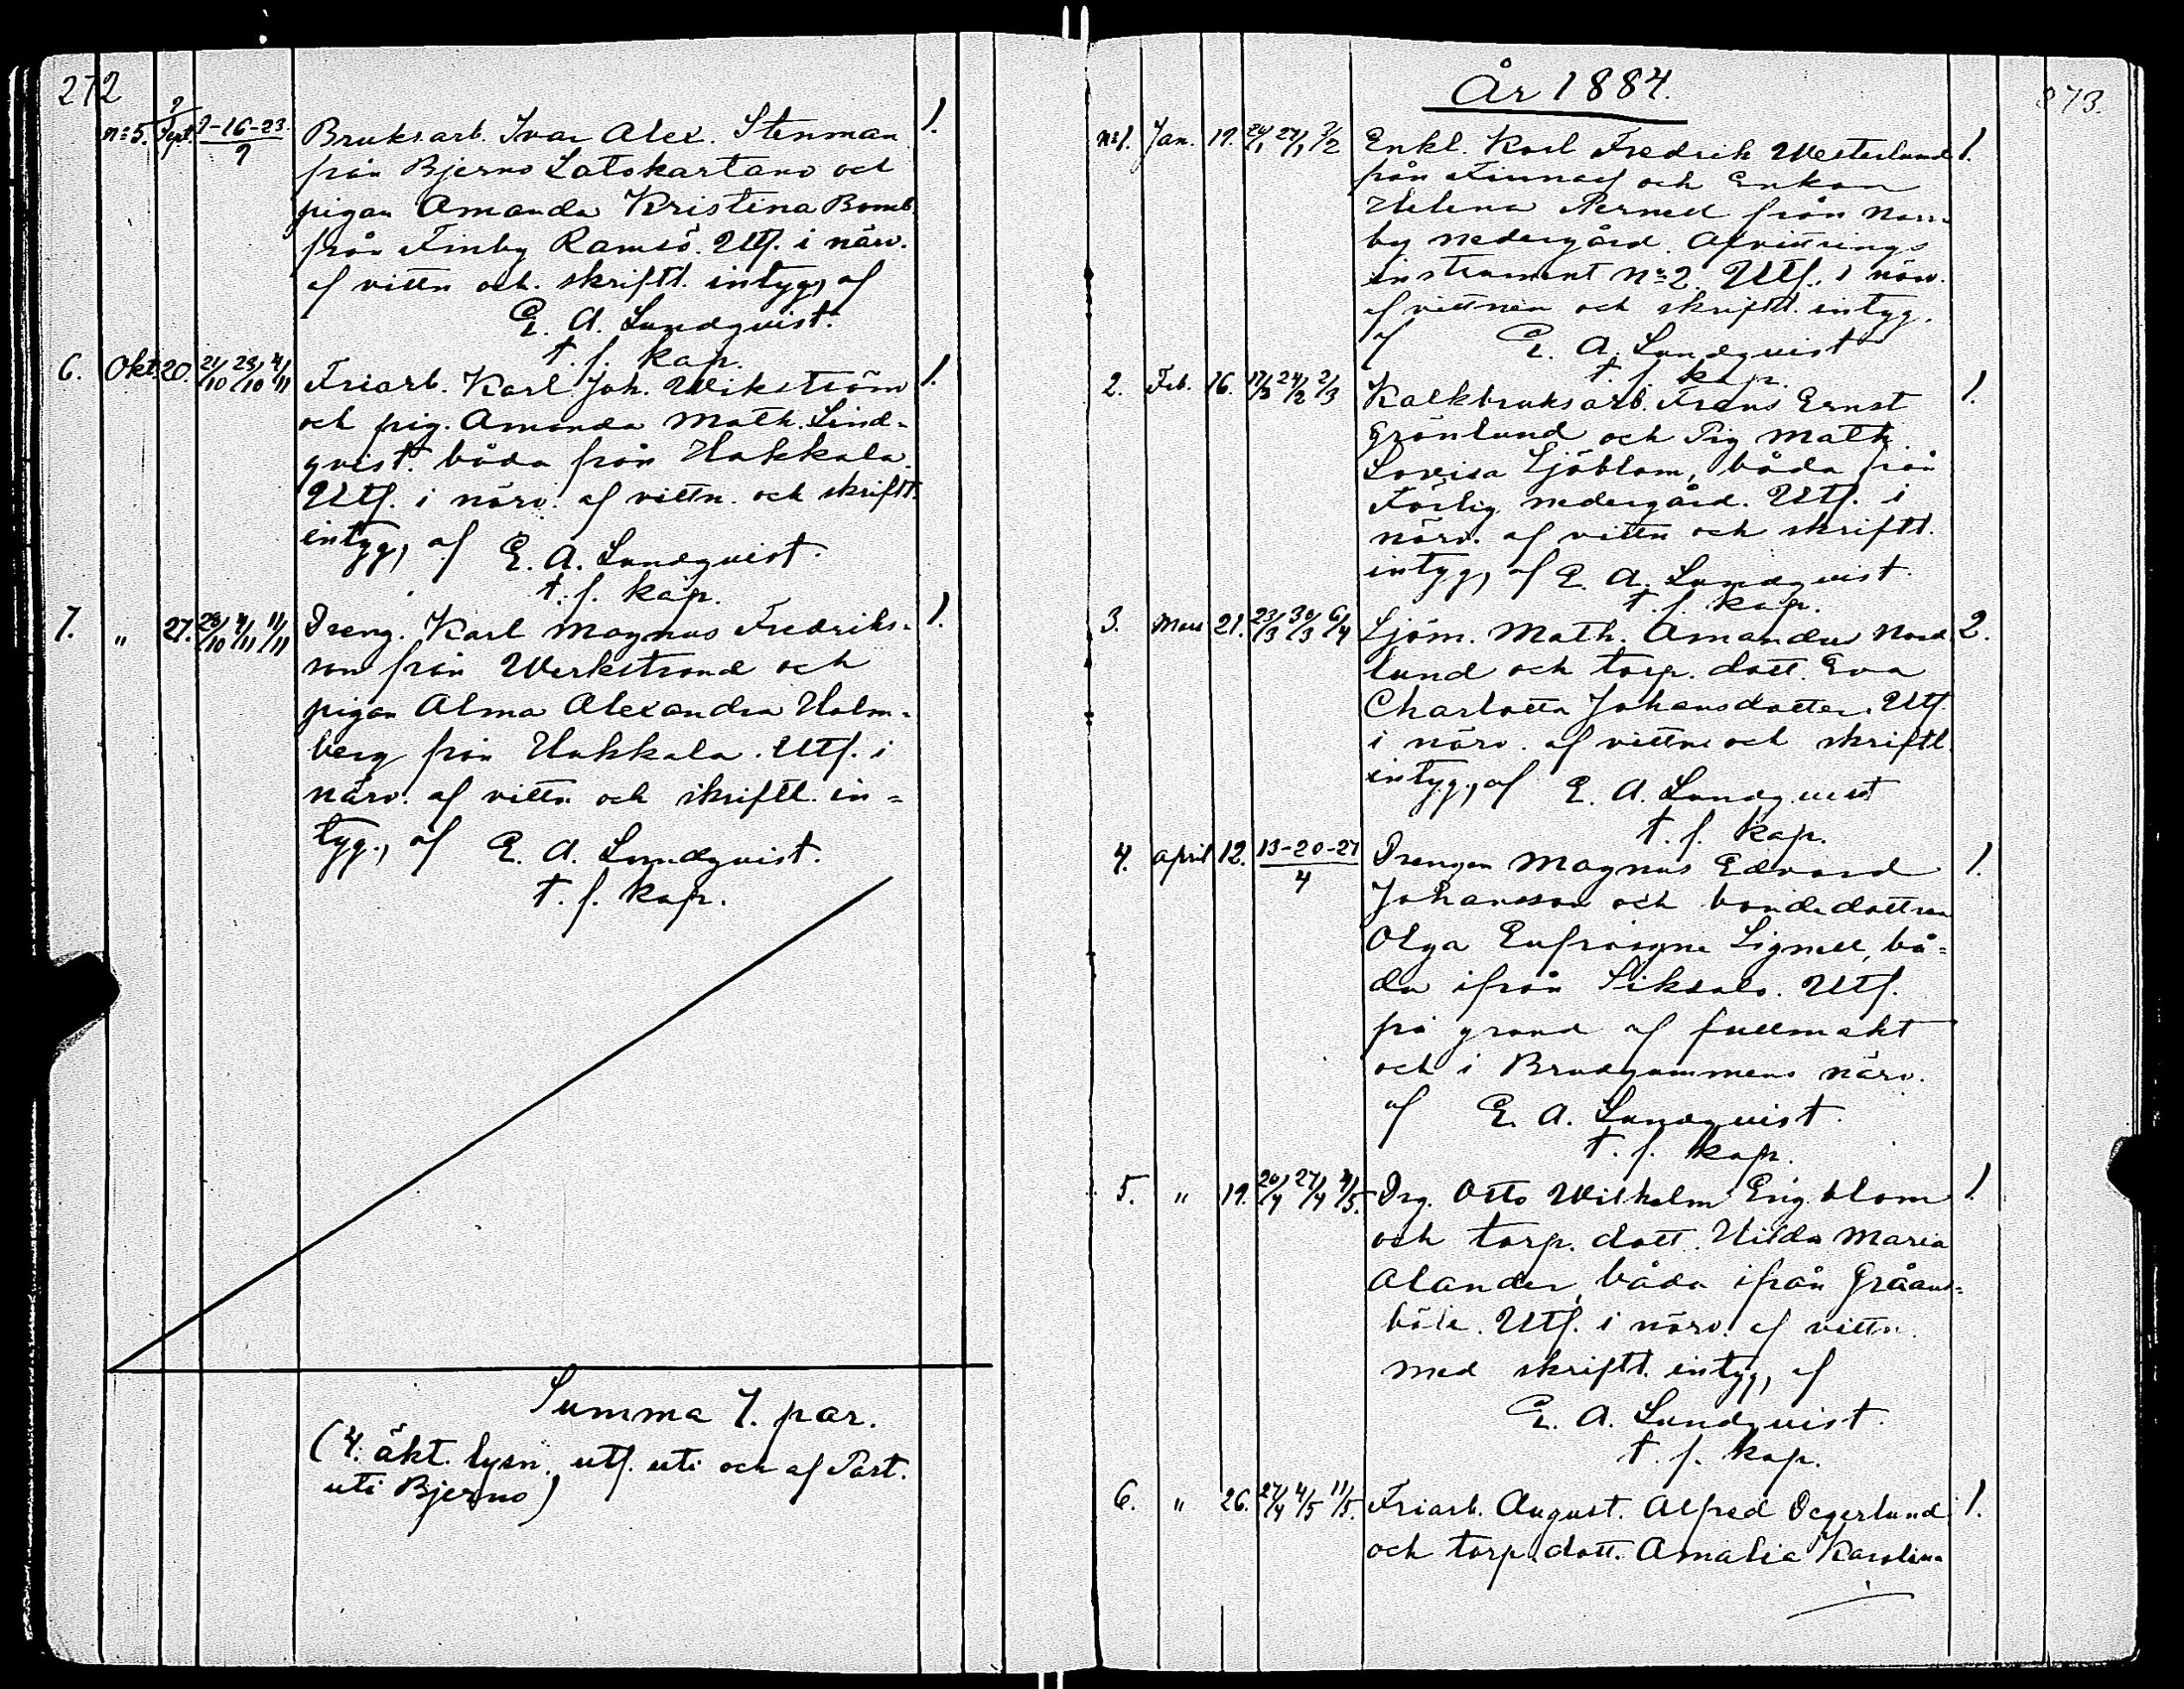 272
n:o 5. 9/Sept. 9-16-23./9 Bruks.arb. Ivar Alex. Stenman 1.
från Bjerno Latokartano och
pigan Amanda Kristina Bomb.
från Finby Ramsö. Utf. i närv.
af vittn och. skriftl. intyg, af
E. A. Lundqvist.
t. f. kap.
6. Okt. 20. 21/10 28/10 4/11 Friarb. Karl Joh. Wikström 1.
och pig. Amanda Math. Lind-
qvist. båda från Hakkala.
Utf. i närv. af vittn. och skriftl.
intyg, af E. A. Lundqvist.
t. f. kap.
7. " 27. 28/10 4/11 11/11 Dreng. Karl Magnus Fredriks- 1.
son från Werkstrand och
pigan Alma Alexandra Holm-
berg från Hakkala. Utf. i
närv. af vittn och skriftl. in-
tyg., af E. A. Lundqvist.
t. f. kap.
Summa 7. par.
(4. äkt. lysn. utf. uti och af Past.
uti Bjerno)
År 1884.
273.
n:o 1. Jan. 19. 20/1 27/1 3/2 Enkl. Karl Fredrik Westerlund 1.
från och Enkan
Helena Pernell från Norr-
by nedergård. Afvittrings
instrument N:o 2. Utf. i närv.
af vittnen och skriftl. intyg.
af E. A. Lundqvist
t. f. kap.
2. Feb. 16. 17/2 24/2 2/3 Kalkbruksarb. Frans Ernst 1.
Grönlund och Pig Math.
Lovisa Sjöblom, båda från
Förlig nedergård. Utf. i
närv. af vittn och skriftl.
intyg, af E. A. Lundqvist.
t. f. kap.
3. Mars 21. 23/3 30/3 6/4 Sjöm. Math. Amandus Nord 2.
lund och torp. dott. Eva
Charlotta Johansdotter. Utf
i närv. af vittne och skriftl.
intyg., af E. A. Lundqvist
t. f. kap.
4. April 12. 13-20-27/4 Drengen Magnus Edvard 1.
Johansson och bondedottren
Olga Eufrosyne Lignell, bå-
da ifrån Siksalo. Utf.
på grund af fullmakt
och i Brudgummens närv.
af E. A. Lundqvist.
t. f. kap.
5. " 19. 20/4 27/4 4/5. Drg. Otto Wilhelm Engblom 1.
och torp. dott. Hilda Maria
Alander, båda ifrån Gråans-
böle. Utf. i närv. af vittn.
med skriftl. intyg, af
E. A. Lundqvist.
t. f. kap.
6. " 26. 27/4 4/5 11/5. Friarb. August. Alfred Degerlund 1.
och torp. dott. Amalia Karolina